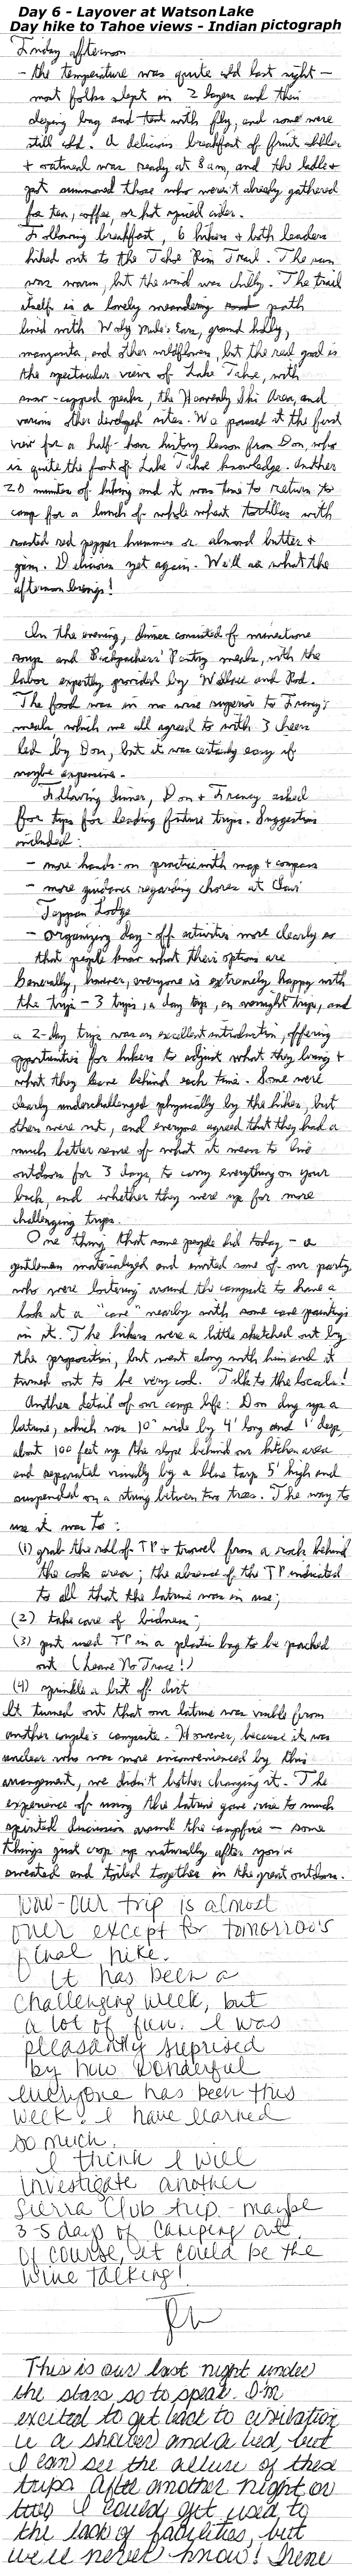 Day 6 - Layover at Watson Lake
Day hike to Tahoe views - Indian pictograph
Friday afternoon
- the temperature was quite cold last night -
most folks slept in 2 layers and their
sleeping bag and tent with fly, and some were
still cold. A delicious breakfast of fruit
+ oatmeal was ready at 8 am, and the ladle +
pot summoned those who weren't already gathered
for tea, coffee, or hot spiced cider.
Following breakfast, 6 hikers + both leaders
hiked out to the Tahoe Rim Trail. The sun
was warm, but the wind was chilly. The trail
itself is a lovely meandering path
lined with Wooly Mule's Ears, ground holly,
manzanita, and other wildflowers, but the real goal is
the spectacular views of Lake Tahoe, with
snow-capped peaks, the Heavenly Ski Area, and
various other developed sites. We paused at the first
view for a half-hour history lesson from Don, who
is quite the font of Lake Tahoe knowledge. Another
20 minutes of hiking and it was time to return to
camp for a lunch of whole wheat tortillas with
roasted red pepper hummus or almond butter +
jam. Delicious yet again. We'll see what the
afternoon brings!
In the evening, dinner consisted of minestrone
soup and Backpackers' Pantry meals, with the
labor expertly provided by Wallace and Rod.
The food was in no wise superior to Francy's
meals, which we all agreed to with 3 cheers
led by Don, but it was certainly easy if
maybe expensive.
Following dinner, Don + Francy asked
for tips for leading future trips. Suggestions
included:
- more hands-on practice with map + compass
- more guidance regarding chores at Clair
Tappan Lodge
- organizing day-off activities more clearly so
that people know what their options are
Generally, however, everyone is extremely happy with
the trip - 3 trips, a day trip, an overnight trip, and
a 2-day trip was an excellent introduction, offering
opportunities for hikers to adjust what they bring +
what they leave behind each time. Some were
clearly underchallenged physically by the hikes, but
others were not, and everyone agreed that they had a
much better sense of what it means to live
outdoors for 3 days, to carry everything on your
back, and whether they were up for more
challenging trips.
One thing that some people did today - a
gentleman materialized and invited some of our party
who were loitering around the campsite to have a
look at a "cave" nearby with some cave paintings
in it. The hikers were a little sketched out by
the proposition, but went along with him and it
turned out to be very cool. Talk to the locals!
Another detail of our camp life: Don dug us a
latrine, which was 10" wide by 4' long and 1' deep,
about 100 feet up the slope behind our kitchen area
and separated visually by a blue tarp 5' high and
suspended on a string between two trees. The way to
use it was to:
(1) grab the roll of TP + trowel from a rock behind
the cook area; the absence of the TP indicated
to all that the latrine was in use;
(2) take care of bidness;
(3) put used TP in a plastic bag to be packed
out (Leave No Trace!)
(4) sprinkle a bit of dirt
It turned out that our latrine was visible from
another couple's campsite. However, because it was
unclear who was more inconvenienced by this
arrangement, we didn't bother changing it. The
experience of using the latrine gave rise to much
spirited discussion around the campfire - some
things just crop up naturally after you've
sweated and toiled together in the great outdoors.
Wow - our trip is almost
over except for tomorrow's
final hike.
It has been a
challenging week, but
a lot of fun. I was
pleasantly suprised
by how wonderful
everyone has been this
week! I have learned
so much.
I think I will
investigate another
Sierra Club trip - maybe
3-5 days of camping out.
Of course, it could be the
wine talking!
This is our last night under
the stars so to speak. I'm
excited to get back to civilization
ie a shelter and a bed, but
I can see the allure of these
trips. After another night or
two I could get used to
the lack of facilities, but
we'll never know! Irene